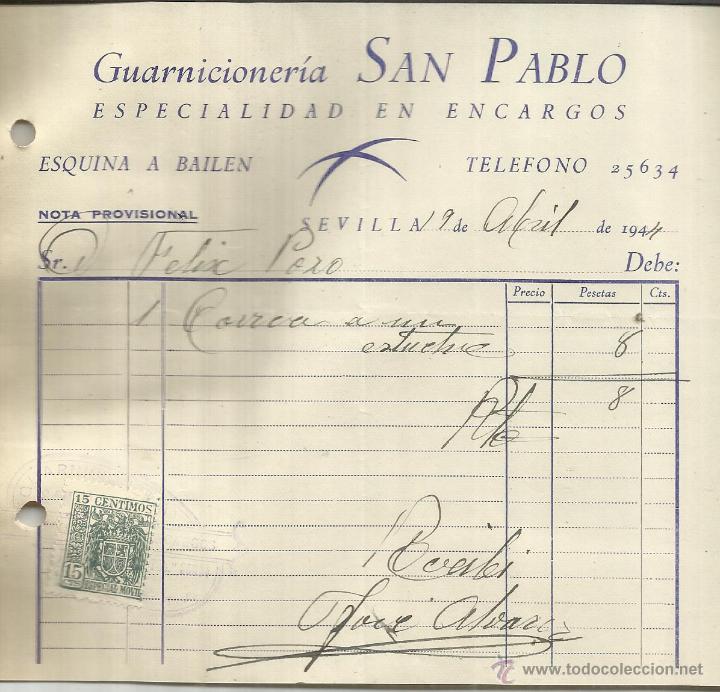 Guarnicionería SAN PABLO
ESPECIALIDAD EN ENCARGOS
ESQUINA A BAILEN TELEFONO 25634
NOTA PROVISIONAL
SEVILLA 19 de Abril de 1944
Sr. D Felix Pozo Debe:
Precio Pesetas Cts.
1 Correa a un
estuche 8
8
15 CENTIMOS
15
MOVIL
Recibi
José Alvarez
www.todocoleccion.net